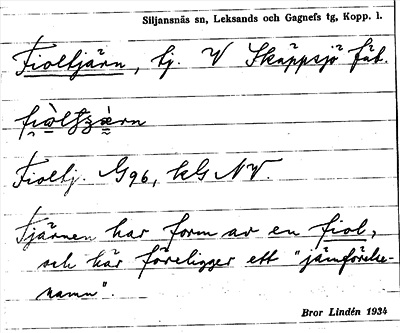 Siljansnäs sn, Leksands och Gagnefs tg, Kopp. l.
Fioltjärn, tj. V Skäppsjö fäb.
Fioltj. G96, kG NV.
Tjärnen har form av en fiol,
och här föreligger ett "jämförelse-
namn".
Bror Lindén 1934